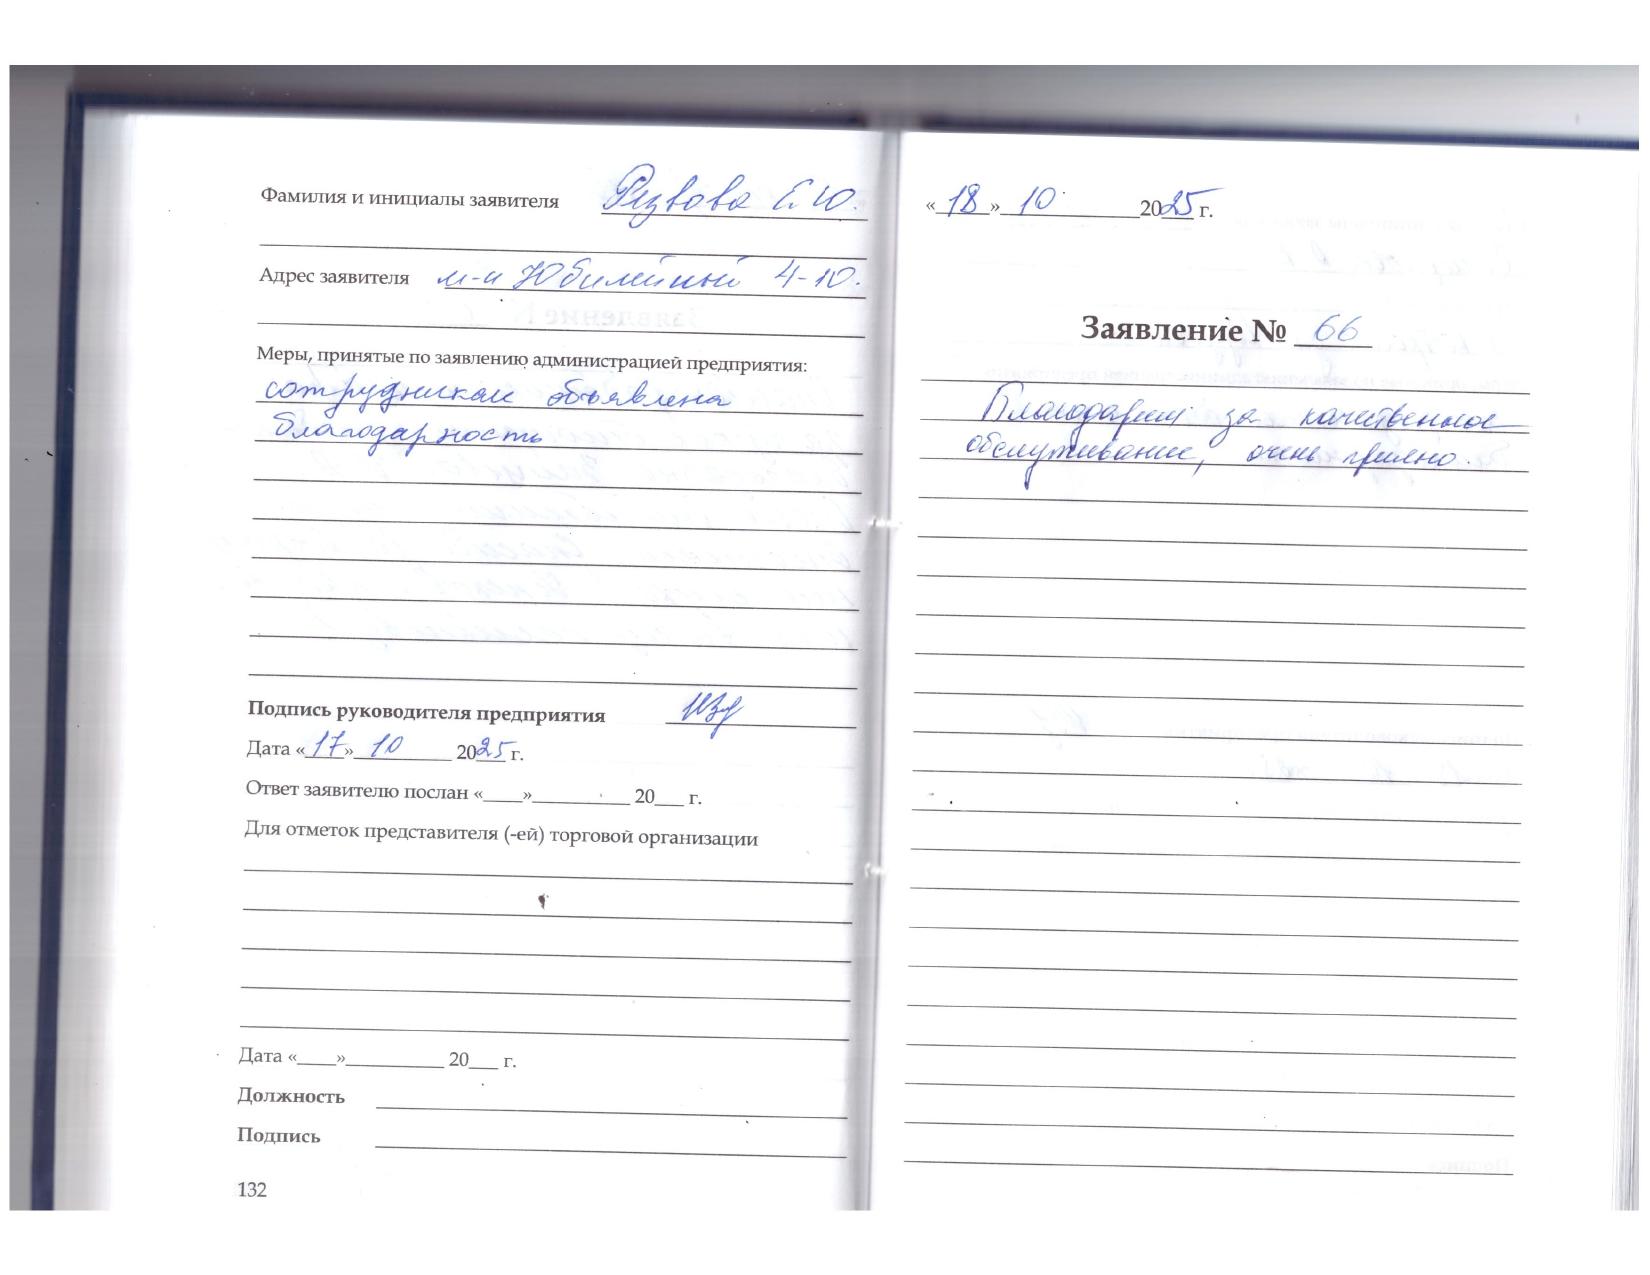 Фамилия и инициалы заявителя Резвова Е.Ю.
Адрес заявителя м-н Юбилейный 4-10.
Меры, принятые по заявлению администрацией предприятия:
сотрудникам объявлена
благодарность
Подпись руководителя предприятия
Дата «17» 10 2025 г.
Ответ заявителю послан «____»__________ 20___ г.
Для отметок представителя (-ей) торговой организации
Дата «____»__________ 20___ г.
Должность
Подпись
132
«18» 10 2025 г.
Заявление № 66
Благодарим за качественное
обслуживание, очень приятно.